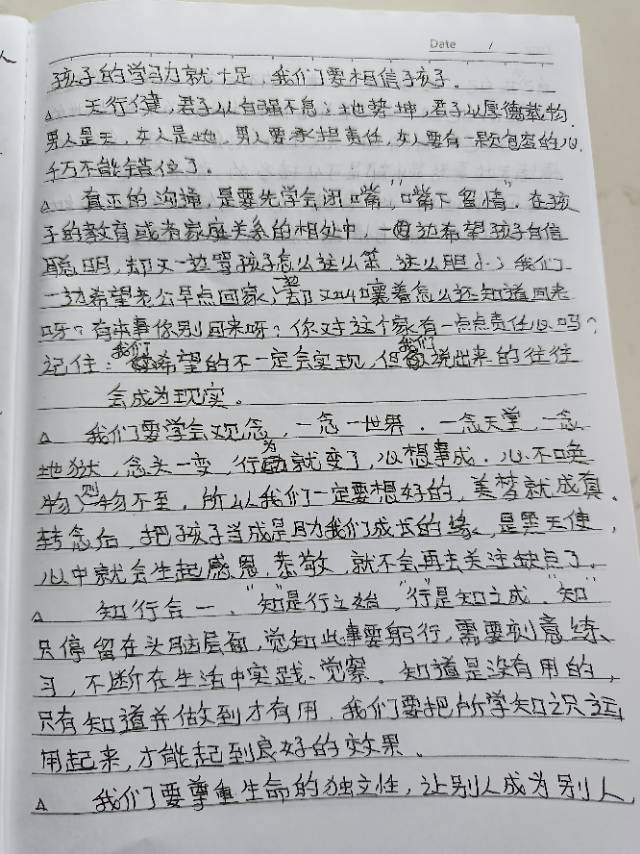 Date /
孩子的学习力就十足，我们要相信孩子．
△ 天行健，君子以自强不息；地势坤，君子以厚德载物．
男人是天，女人是地，男人要承担责任，女人要有一颗包容的心，
千万不能错位了。
△ 真正的沟通，是要先学会闭嘴，“嘴下留情”．在孩
子的教育或者家庭关系的相处中，一边希望孩子自信
聪明，却又一边骂孩子怎么这么笨，这么胆小；我们
一边希望老公早点回家，一边却又叫嚷着怎么还知道回来
呀？有本事你别回来呀？你对这个家有一点点责任心吗？
记住：我们希望的不一定会实现，但我们说出来的往往
会成为现实。
△ 我们要学会观念，一念一世界．一念天堂，一念
地狱，念头一变，行为就变了，心想事成．心不唤
物，则物不至，所以我们一定要想好的，美梦就成真．
转念后，把孩子当成是助我们成长的缘，是黑天使，
心中就会生起感恩，恭敬，就不会再去关注缺点了。
△ 知行合一，“知”是行之始，“行”是知之成．“知”
只停留在头脑层面，觉知此事要躬行，需要刻意练
习，不断在生活中实践、觉察．知道是没有用的，
只有知道并做到才有用．我们要把所学知识运
用起来，才能起到良好的效果．
△ 我们要尊重生命的独立性，让别人成为别人，